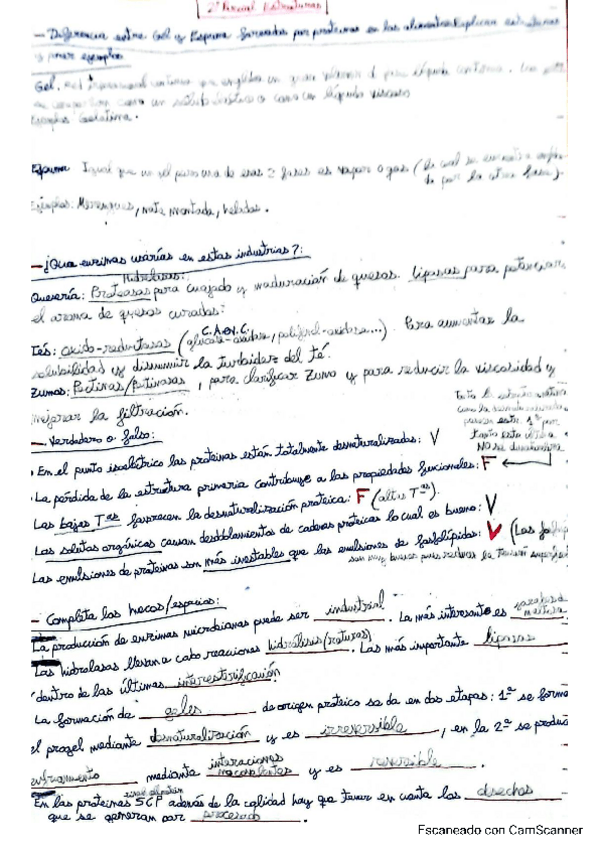 2º Parcial Estructuras
- Diferencia entre Gel y Espuma formados por proteínas en los alimentos. Explican estructuras
y poner ejemplos
Gel. Red tridimensional continua que engloba un gran volumen de fase líquida continua.
se comportan como un sólido elástico o como un líquido viscoso
Ejemplos Gelatina.
Espuma Igual que un gel pero una de esas 2 fases es vapor o gas (la cual se encuentra
por la otra fase).
Ejemplos: Merengues, nata montada, helados.
- ¿Que enzimas usarías en estas industrias?:
Hidrolasas:
Quesería: Proteasas para cuajado y maduración de quesos. Lipasas para potenciar
el aroma de quesos curados.
Tés: oxido-reductasas (glucosa-oxidasa, polifenol-oxidasa...). Para aumentar la
solubilidad y disminuir la turbidez del té.
Zumos: Pectinas/Pectinasas, para clarificar zumo y para reducir la viscosidad y
mejorar la filtración.
- Verdadero o falso:
· En el punto isoeléctrico las proteínas están totalmente desnaturalizadas: V
· La pérdida de la estructura primaria contribuye a las propiedades funcionales: F
NO se
Las bajas Tªs favorecen la desnaturalización proteica: F (altas Tªs).
Las solutos orgánicos causan desdoblamientos de cadenas proteicas lo cual es bueno: V
Las emulsiones de proteínas son más inestables que las emulsiones de fosfolípidos: V (Los
son muy buenos pues reducen la tensión
- Completa los huecos/espacios:
La producción de enzimas microbianas puede ser industrial. La más interesante es
Las hidrolasas llevan a cabo reacciones hidrólisis (roturas). Las más importante lipasas
dentro de las últimas interesterificación
La formación de geles de origen proteico se da en dos etapas: 1ª se forma
el progel mediante desnaturalización y es irreversible, en la 2ª se produce
enfriamiento mediante interacciones no covalentes y es reversible.
En las proteínas SCP además de la calidad hay que tener en cuenta los desechos
que se generan por procesado.
Escaneado con CamScanner